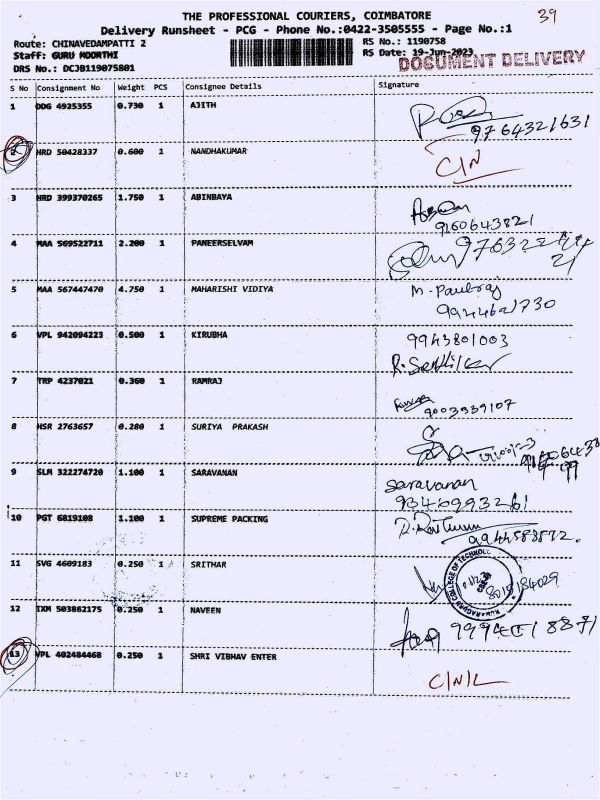 THE PROFESSIONAL COURIERS, COIMBATORE
39
Delivery Runsheet - PCG - Phone No.:0422-3505555 - Page No.:1
Route: CHINAVEDAMPATTI 2
RS No.: 1190758
Staff: GURU MOORTHI
RS Date: 19-Jun-2023
DOCUMENT DELIVERY
DRS No.: DCJB119075801
S No Consignment No Weight PCS Consignee Details Signature
1 DDG 4925355 0.730 1 AJITH
9764321631
2 HRD 50428337 0.600 1 NANDHAKUMAR
C/N
3 HRD 399370265 1.750 1 ABINBAYA
9160643821
4 MAA 569522711 2.200 1 PANEERSELVAM
5 MAA 567447470 4.750 1 MAHARISHI VIDIYA M. Paulraj
9944621730
6 VPL 942094223 0.500 1 KIRUBHA 9943801003
R. Senthilkar
7 TRP 4237021 0.360 1 RAMRAJ
9003939107
8 HSR 2763657 0.280 1 SURIYA PRAKASH
9 SLM 322274720 1.100 1 SARAVANAN Saravanan
9346993261
10 PGT 6819108 1.100 1 SUPREME PACKING
9944588572.
11 SVG 4609183 0.250 1 SRITHAR
KUMARAGURU COLLEGE OF TECHNOLOGY
8015184029
12 IXM 503862175 0.250 1 NAVEEN
13 VPL 402484468 0.250 1 SHRI VIBHAV ENTER
C/N/L